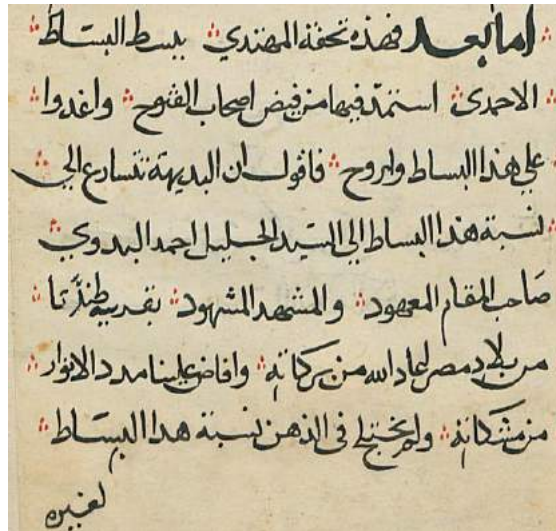 اما بعد فهذه تحفة المهتدي ببسط البساط
الاحمدي استمد فيها من فيض اصحاب الفتوح واغدوا
علي هذا البساط واروح فاقول ان البديهة تتسارع الي
نسبة هذا البساط الي السيد الجليل احمد البدوي
صاحب المقام المعهود والمشهد المشهود بقرية طندتا
من بلاد مصر اعاد الله من بركاته وافاض علينا مدد الانوار
من مشكاته ولم يختلج في الذهن نسبة هذا البساط
لغيره